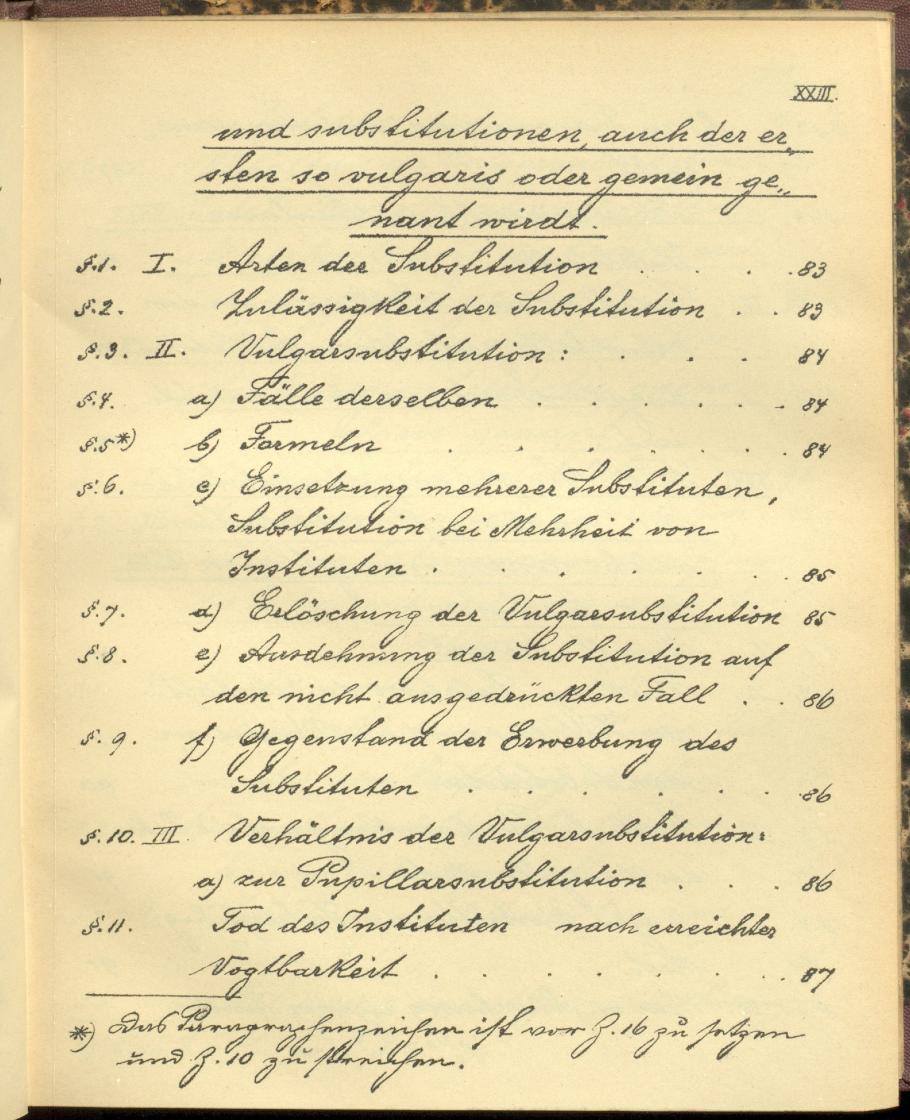 XXIII.
und substitutionen, auch der er„
sten so vulgaris oder gemein ge„
nant wirdt.
§.1. I. Arten der Substitution . . . . 83
§.2. Zulässigkeit der Substitution . . 83
§.3. II. Vulgarsubstitution: . . . 84
§.4. a) Fälle derselben . . . . . . 84
§.5*) b) Formeln . . . . . . . 84
§.6. c) Einsetzung mehrerer Substituten,
Substitution bei Mehrheit von
Instituten . . . . . . 85
§.7. d) Erlöschung der Vulgarsubstitution 85
§.8. e) Ausdehnung der Substitution auf
den nicht ausgedrückten Fall . . 86
§.9. f) Gegenstand der Erwerbung des
Substituten . . . . . . 86
§.10. III. Verhältnis der Vulgarsubstitution:
a) zur Pupillarsubstitution . . . 86
§.11. Tod des Instituten nach erreichter
Vogtbarkeit . . . . . . . 87
*) Das Paragraphenzeichen ist vor Z.16 zu setzen
und Z.10 zu streichen.